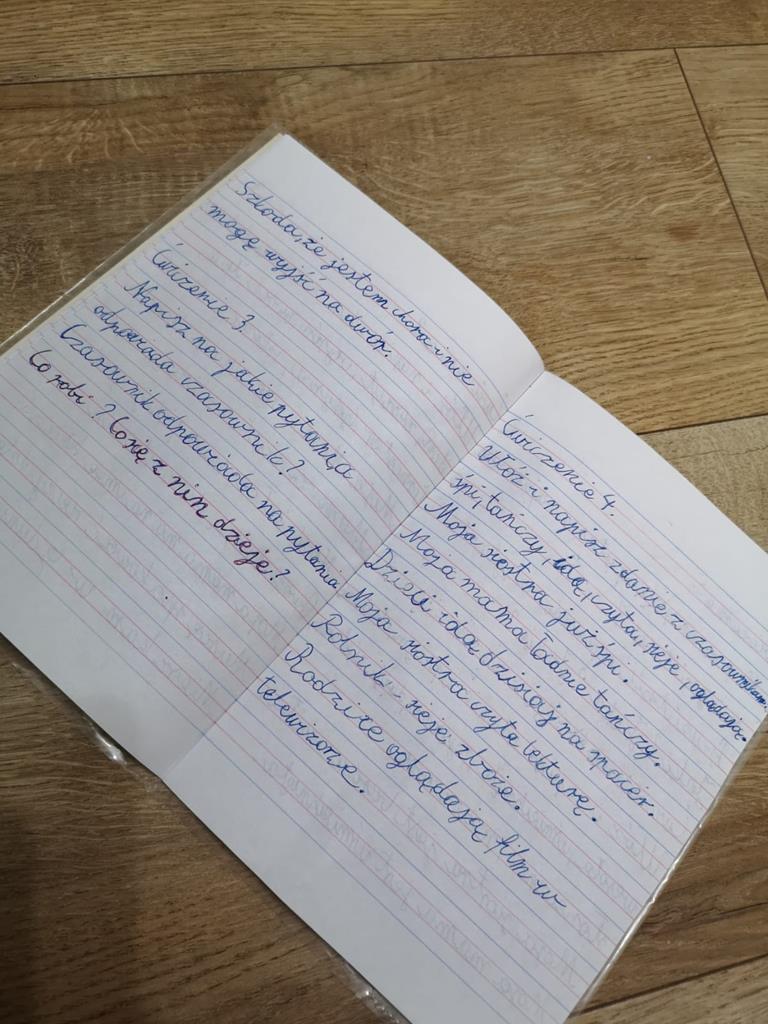 Szkoda, że jestem chora i nie
mogę wyjść na dwór.
Ćwiczenie 3.
Napisz na jakie pytania
odpowiada czasownik?
Czasownik odpowiada na pytania
Co robi? Co się z nim dzieje?
Ćwiczenie 4.
Ułóż i napisz zdanie z czasownikam
śpi, tańczy, idą, czyta, sieje, oglądają.
Moja siostra już śpi.
Moja mama ładnie tańczy.
Dzieci idą dzisiaj na spacer.
Moja siostra czyta lekturę.
Rolnik sieje zboże.
Rodzice oglądają film w
telewizorze.